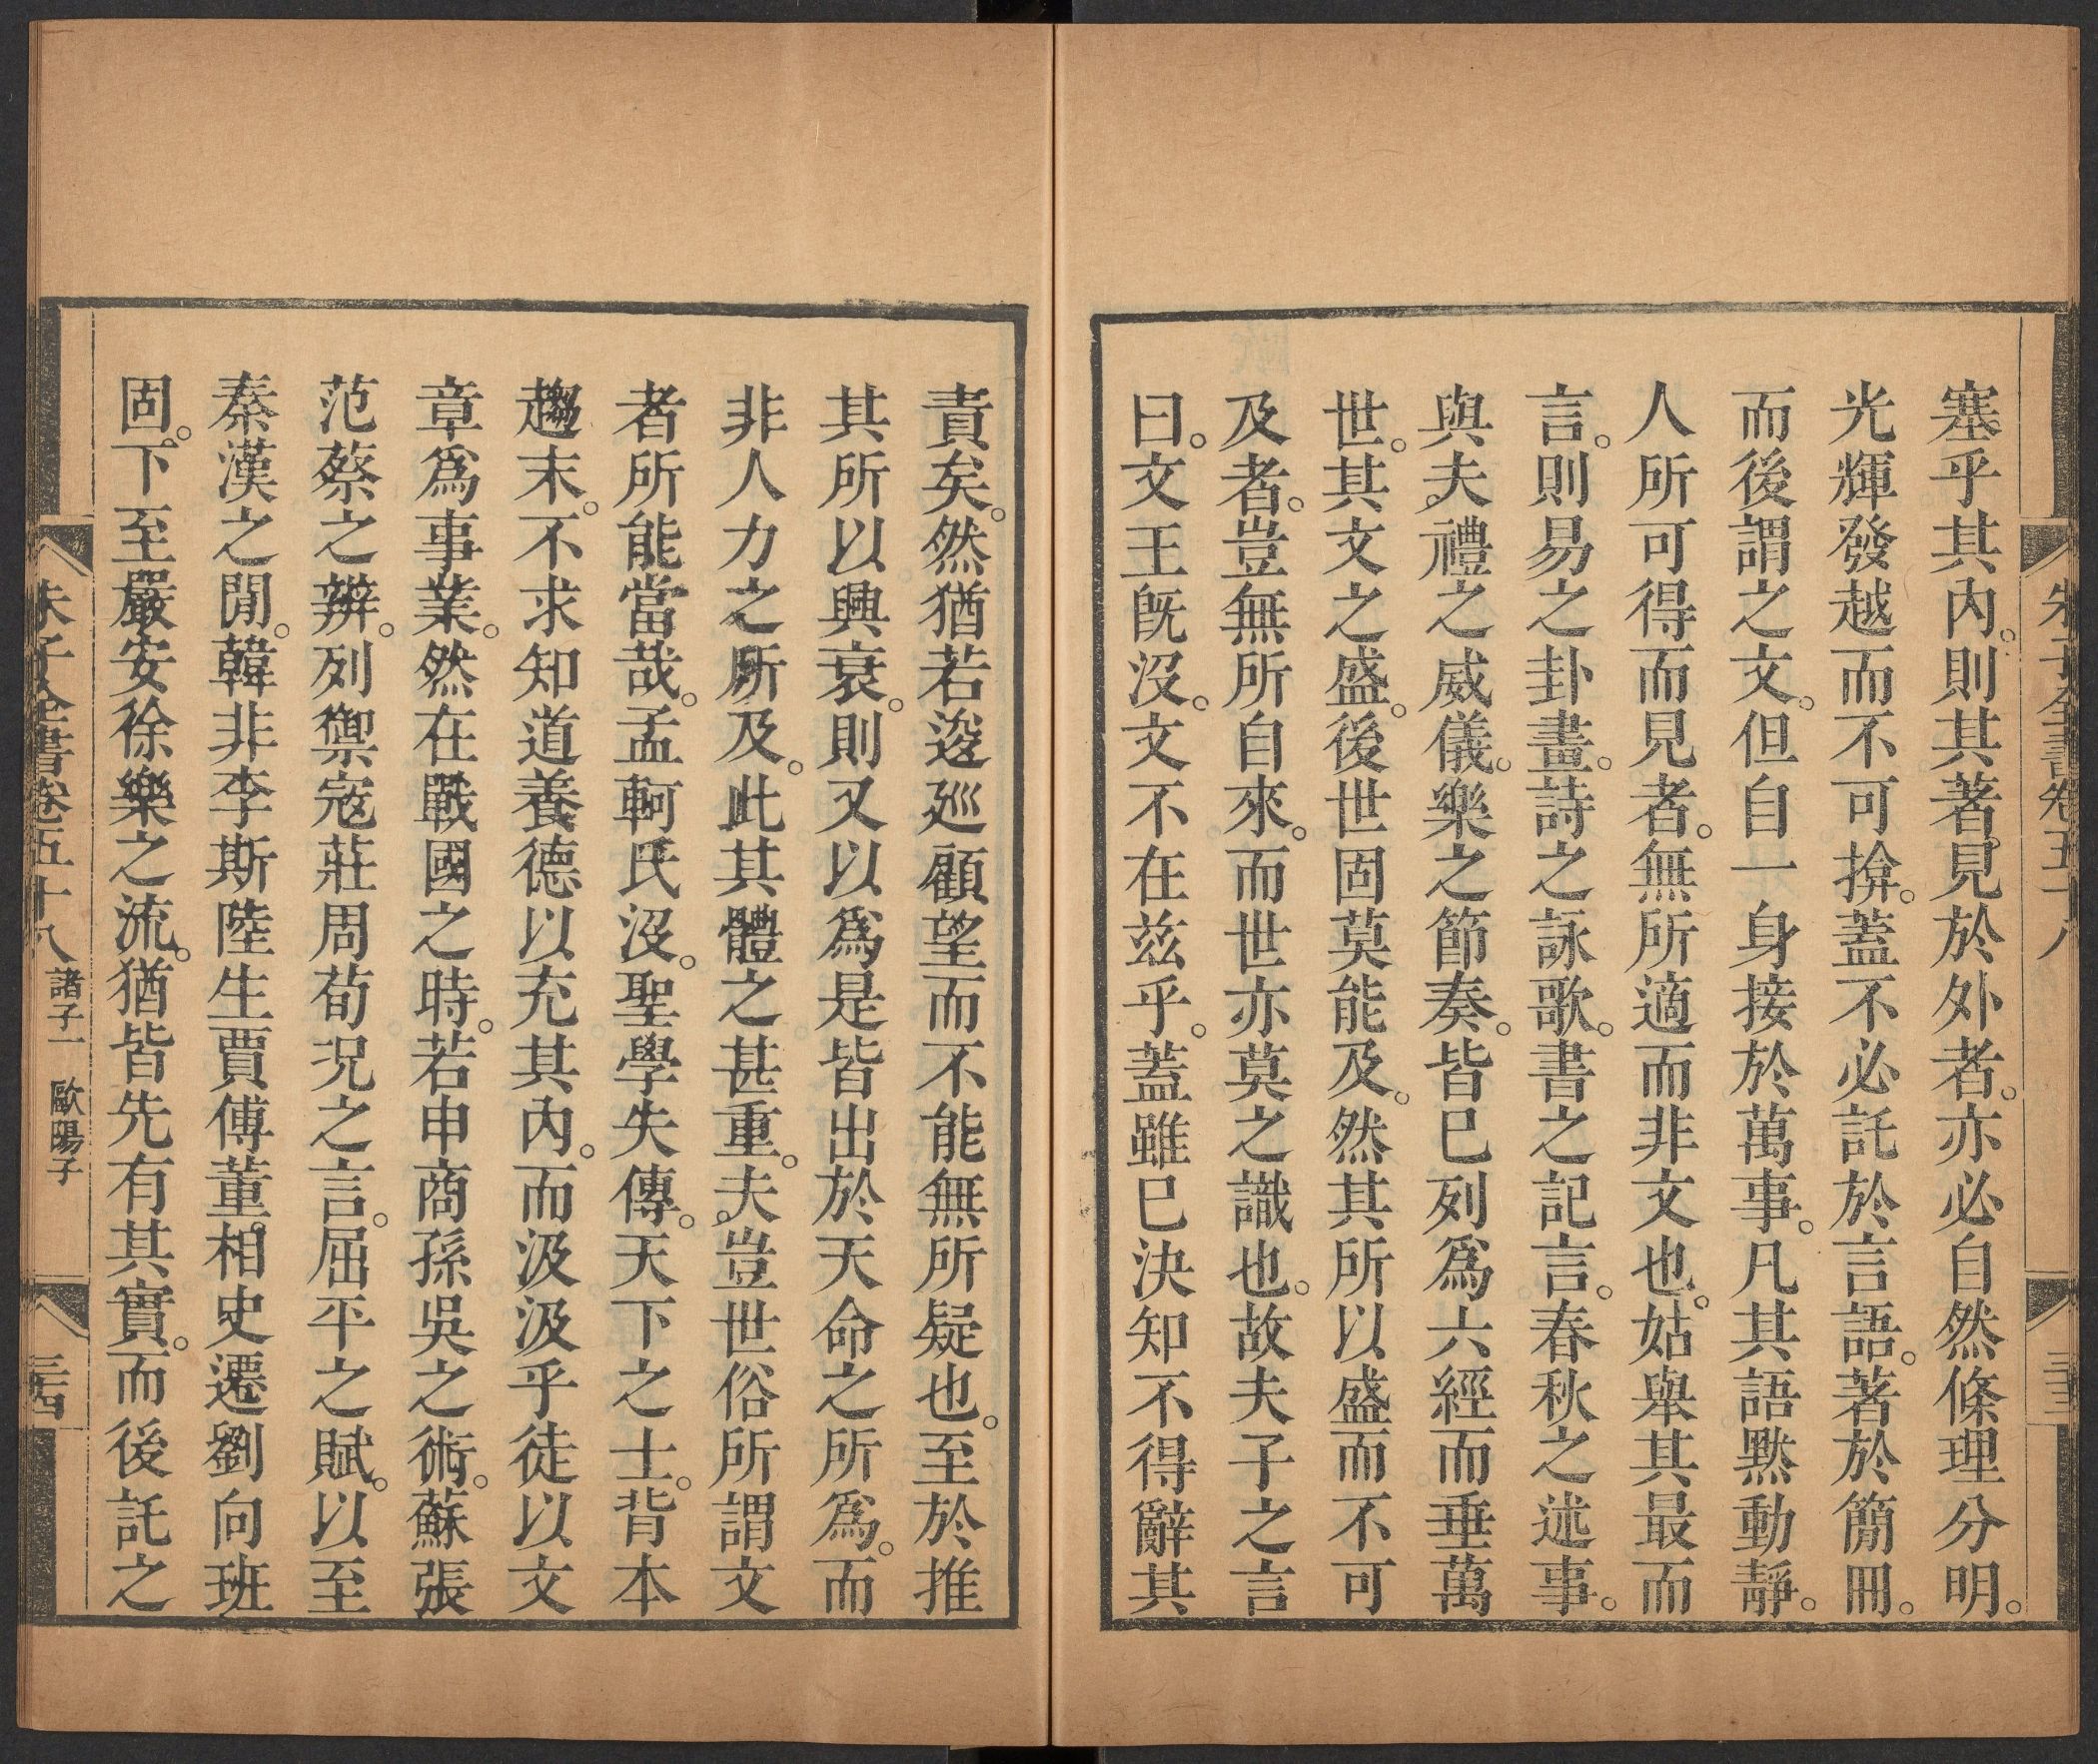 朱子全書卷五十八
三十三
塞乎其內。則其著見於外者。亦必自然條理分明。
光輝發越而不可揜。蓋不必託於言語。著於簡冊。
而後謂之文。但自一身接於萬事。凡其語黙動靜。
人所可得而見者。無所適而非文也。姑舉其最而
言。則易之卦畫。詩之詠歌。書之記言。春秋之述事。
與夫禮之威儀。樂之節奏。皆已列爲六經而垂萬
世。其文之盛。後世固莫能及。然其所以盛而不可
及者。豈無所自來。而世亦莫之識也。故夫子之言
曰。文王旣沒。文不在兹乎。蓋雖已決知不得辭其
責矣。然猶若逡廵顧望而不能無所疑也。至於推
其所以興衰。則又以爲是皆出於天命之所爲。而
非人力之所及。此其體之甚重。夫豈世俗所謂文
者所能當哉。孟軻氏沒。聖學失傳。天下之士。背本
趨末。不求知道養德以充其內。而汲汲乎徒以文
章爲事業。然在戰國之時。若申商孫吳之術。蘇張
范蔡之辨。列禦寇莊周荀况之言。屈平之賦。以至
秦漢之閒。韓非李斯陸生賈傅董相史遷劉向班
固。下至嚴安徐樂之流。猶皆先有其實。而後託之
朱子全書卷五十八 諸子一 歐陽子
三十四